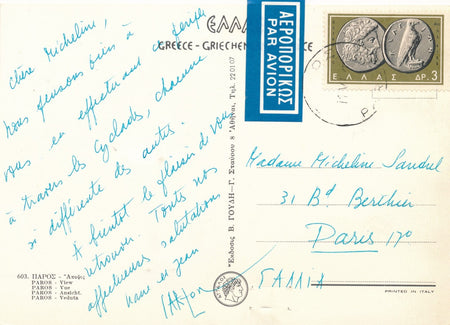 Chère Micheline,
nous pensons bien à
vous en effectuant ce périple
à travers les Cyclades, chacune
si différente des autres.
A bientôt le plaisir de vous
retrouver. Toutes nos
affectueuses salutations
et Jean
603. ΠΑΡΟΣ - Ἄποψις
PAROS - View
PAROS - Vue
PAROS - Ansicht
PAROS - Veduta
GREECE - GRIECHEN
ΑΕΡΟΠΟΡΙΚΩΣ
PAR AVION
ΕΛΛΑΣ ΔΡ. 3
Madame Micheline Sandrel
31 Bd Berthier
Paris 17e
ΓΑΛΛΙΑ
PRINTED IN ITALY
Ἔκδοσις Β. ΓΟΥΔΗ - Γ. Σταύρου 8 Ἀθῆναι, Τηλ. 220107